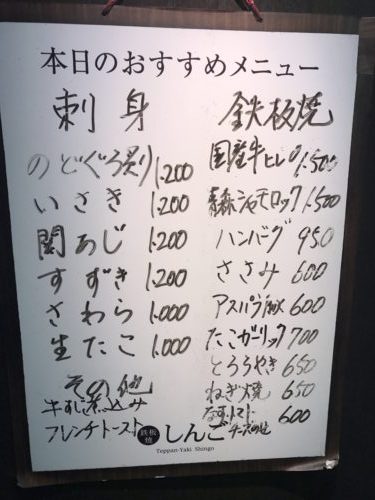 本日のおすすめメニュー
刺身
のどぐろ炙り 1,200
いさき 1,200
関あじ 1,200
すずき 1,200
さわら 1,000
生たこ 1,000
その他
牛すじ煮込み
フレンチトースト
鉄板焼
国産牛ヒレ 1,500
青森シャモロック 1,500
ハンバーグ 950
ささみ 600
アスパラ 600
たこガーリック 700
とろろやき 650
ねぎ焼 650
なすトマト
チーズ 600
鉄板焼 しんご
Teppan-Yaki Shingo